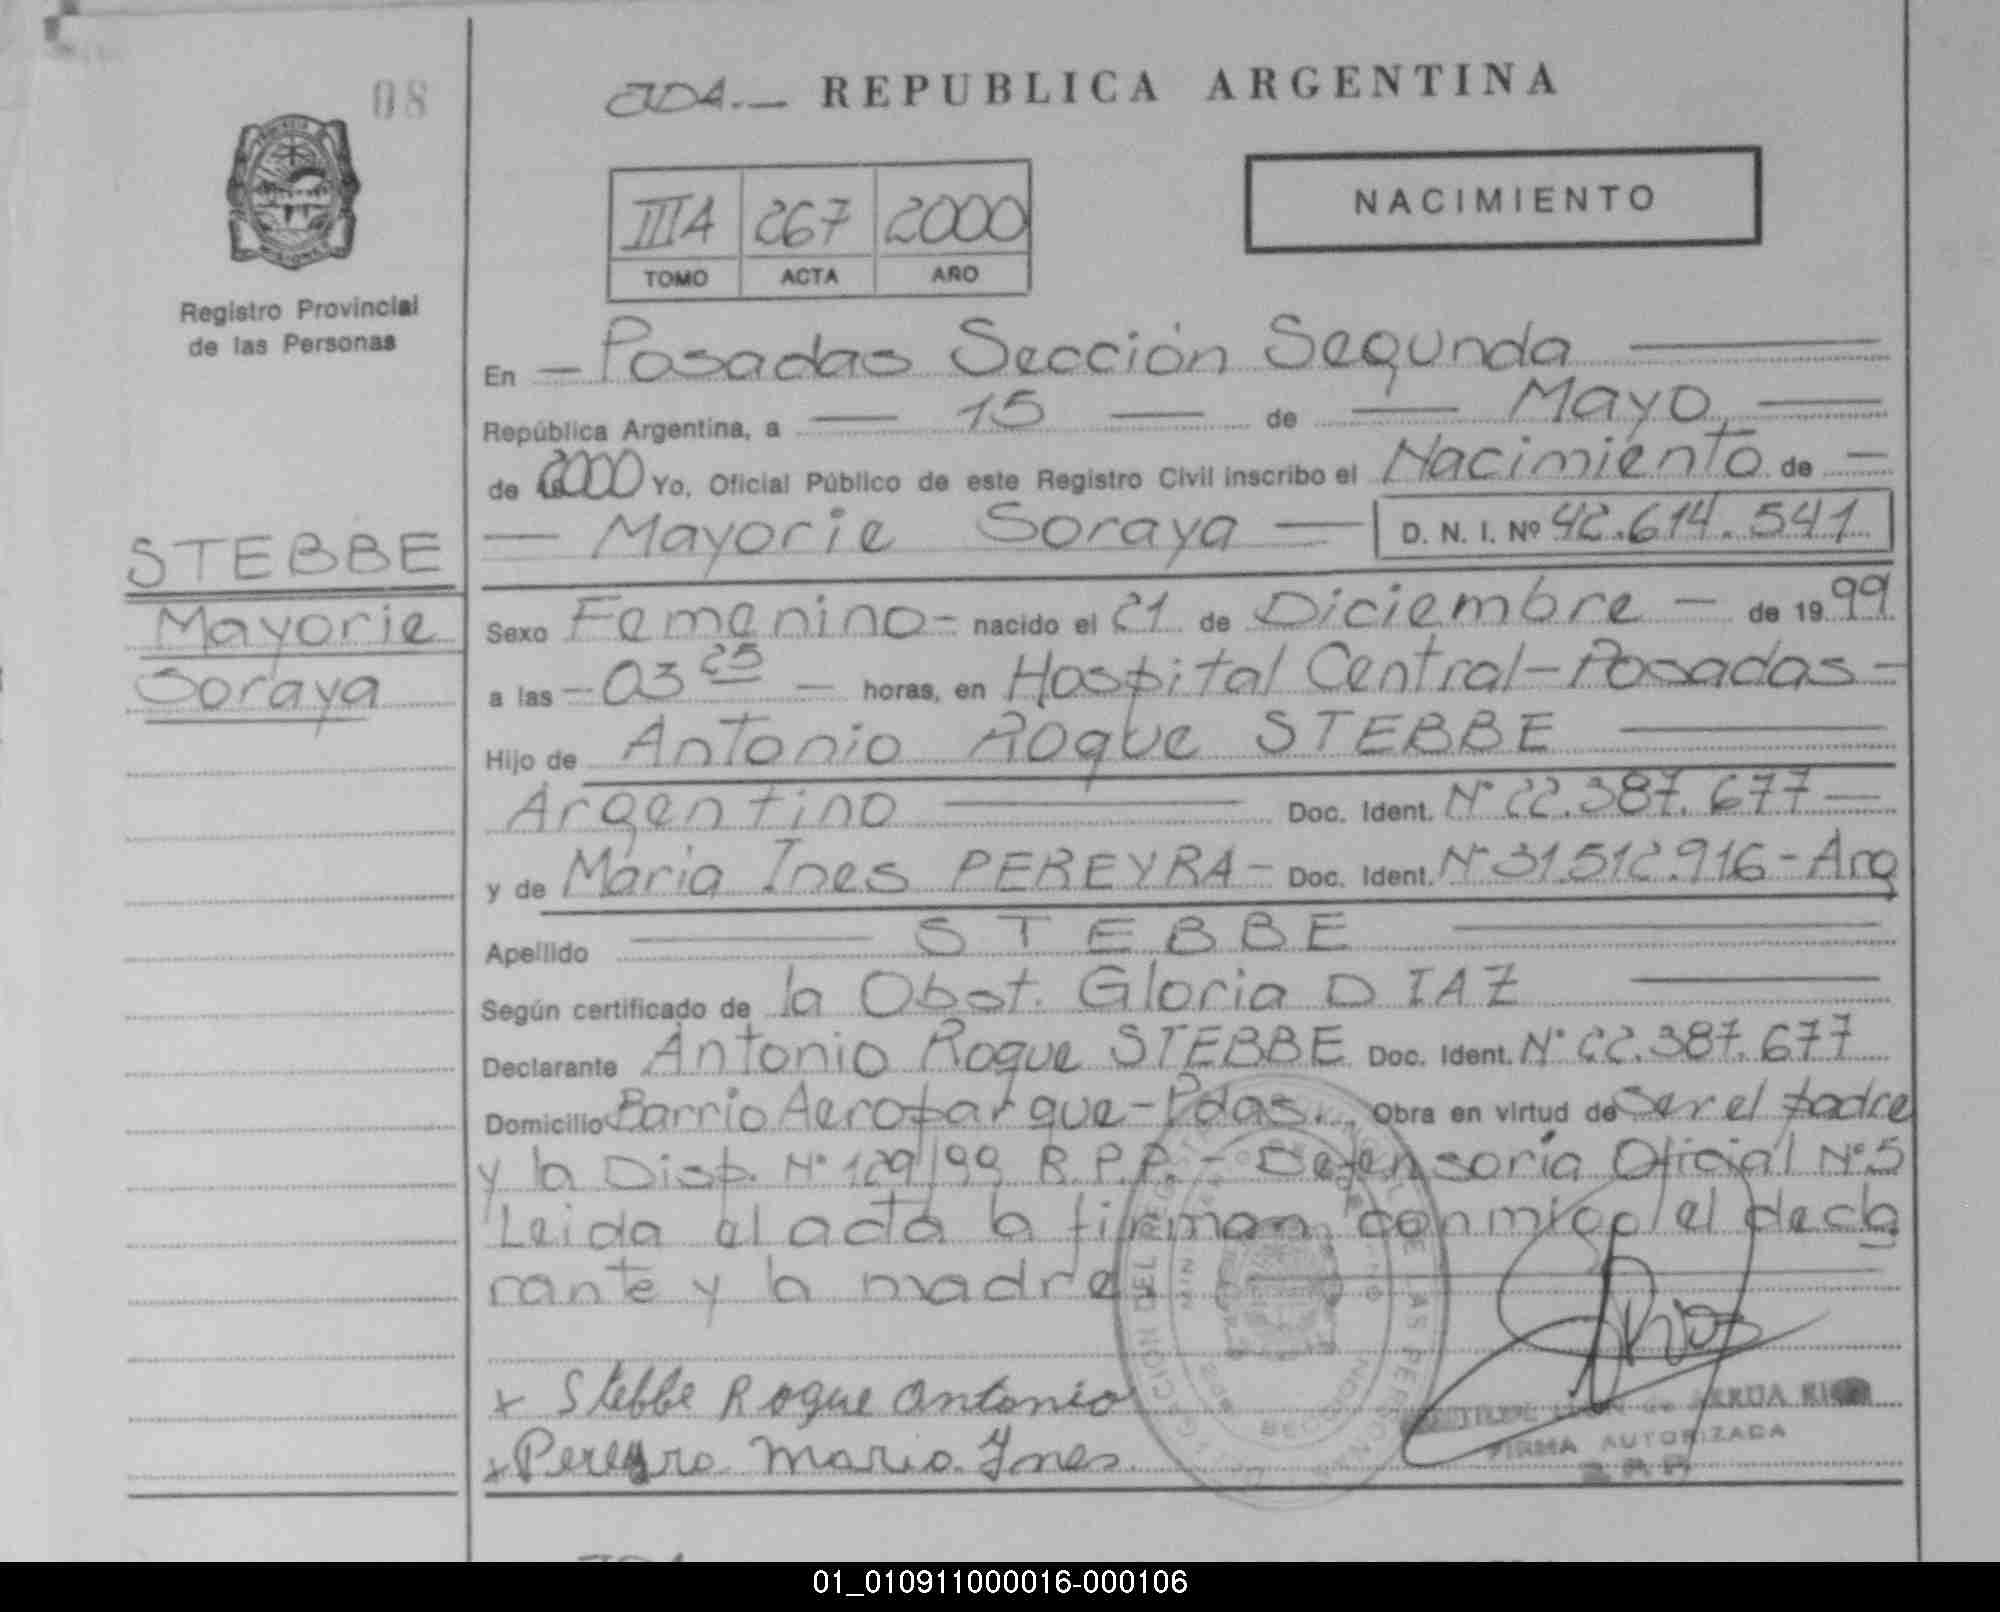 08
REPUBLICA ARGENTINA
NACIMIENTO
IIIA 267 2000
TOMO ACTA AÑO
Registro Provincial
de las Personas
En — Posadas Sección Segunda —
República Argentina, a — 15 — de — Mayo —
de 2000 Yo, Oficial Público de este Registro Civil inscribo el Nacimiento de —
— Mayorie Soraya — D. N. I. Nº 42.614.541
STEBBE
Mayorie
Soraya
Sexo Femenino - nacido el 21 de Diciembre — de 19 99
a las — 03 25 — horas, en Hospital Central - Posadas -
Hijo de Antonio Roque STEBBE —
Argentino — Doc. Ident. Nº 22.387.677 —
y de Maria Ines PEREYRA - Doc. Ident. Nº 31.512.916 - Arg
Apellido — STEBBE —
Según certificado de la Obst. Gloria DIAZ —
Declarante Antonio Roque STEBBE Doc. Ident. Nº 22.387.677
Domicilio Barrio Aeroparque - Pdas. Obra en virtud de ser el padre
y la Disp. Nº 129/99 R.P.P. - Defensoría Oficial Nº 5
Leida el acta la firman conmigo el decla
rante y la madre
x Stebbe Roque Antonio
x Pereyra Maria Ines
FIRMA AUTORIZADA
01_010911000016-000106